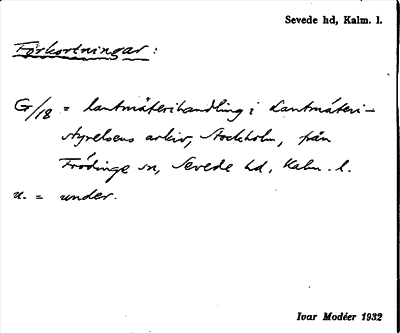 Sevede hd, Kalm. l.
Förkortningar:
G/18 = lantmäterihandling i Lantmäteri-
styrelsens arkiv, Stockholm, från
Frödinge sn, Sevede hd, Kalm. l.
u. = under.
Ivar Modéer 1932